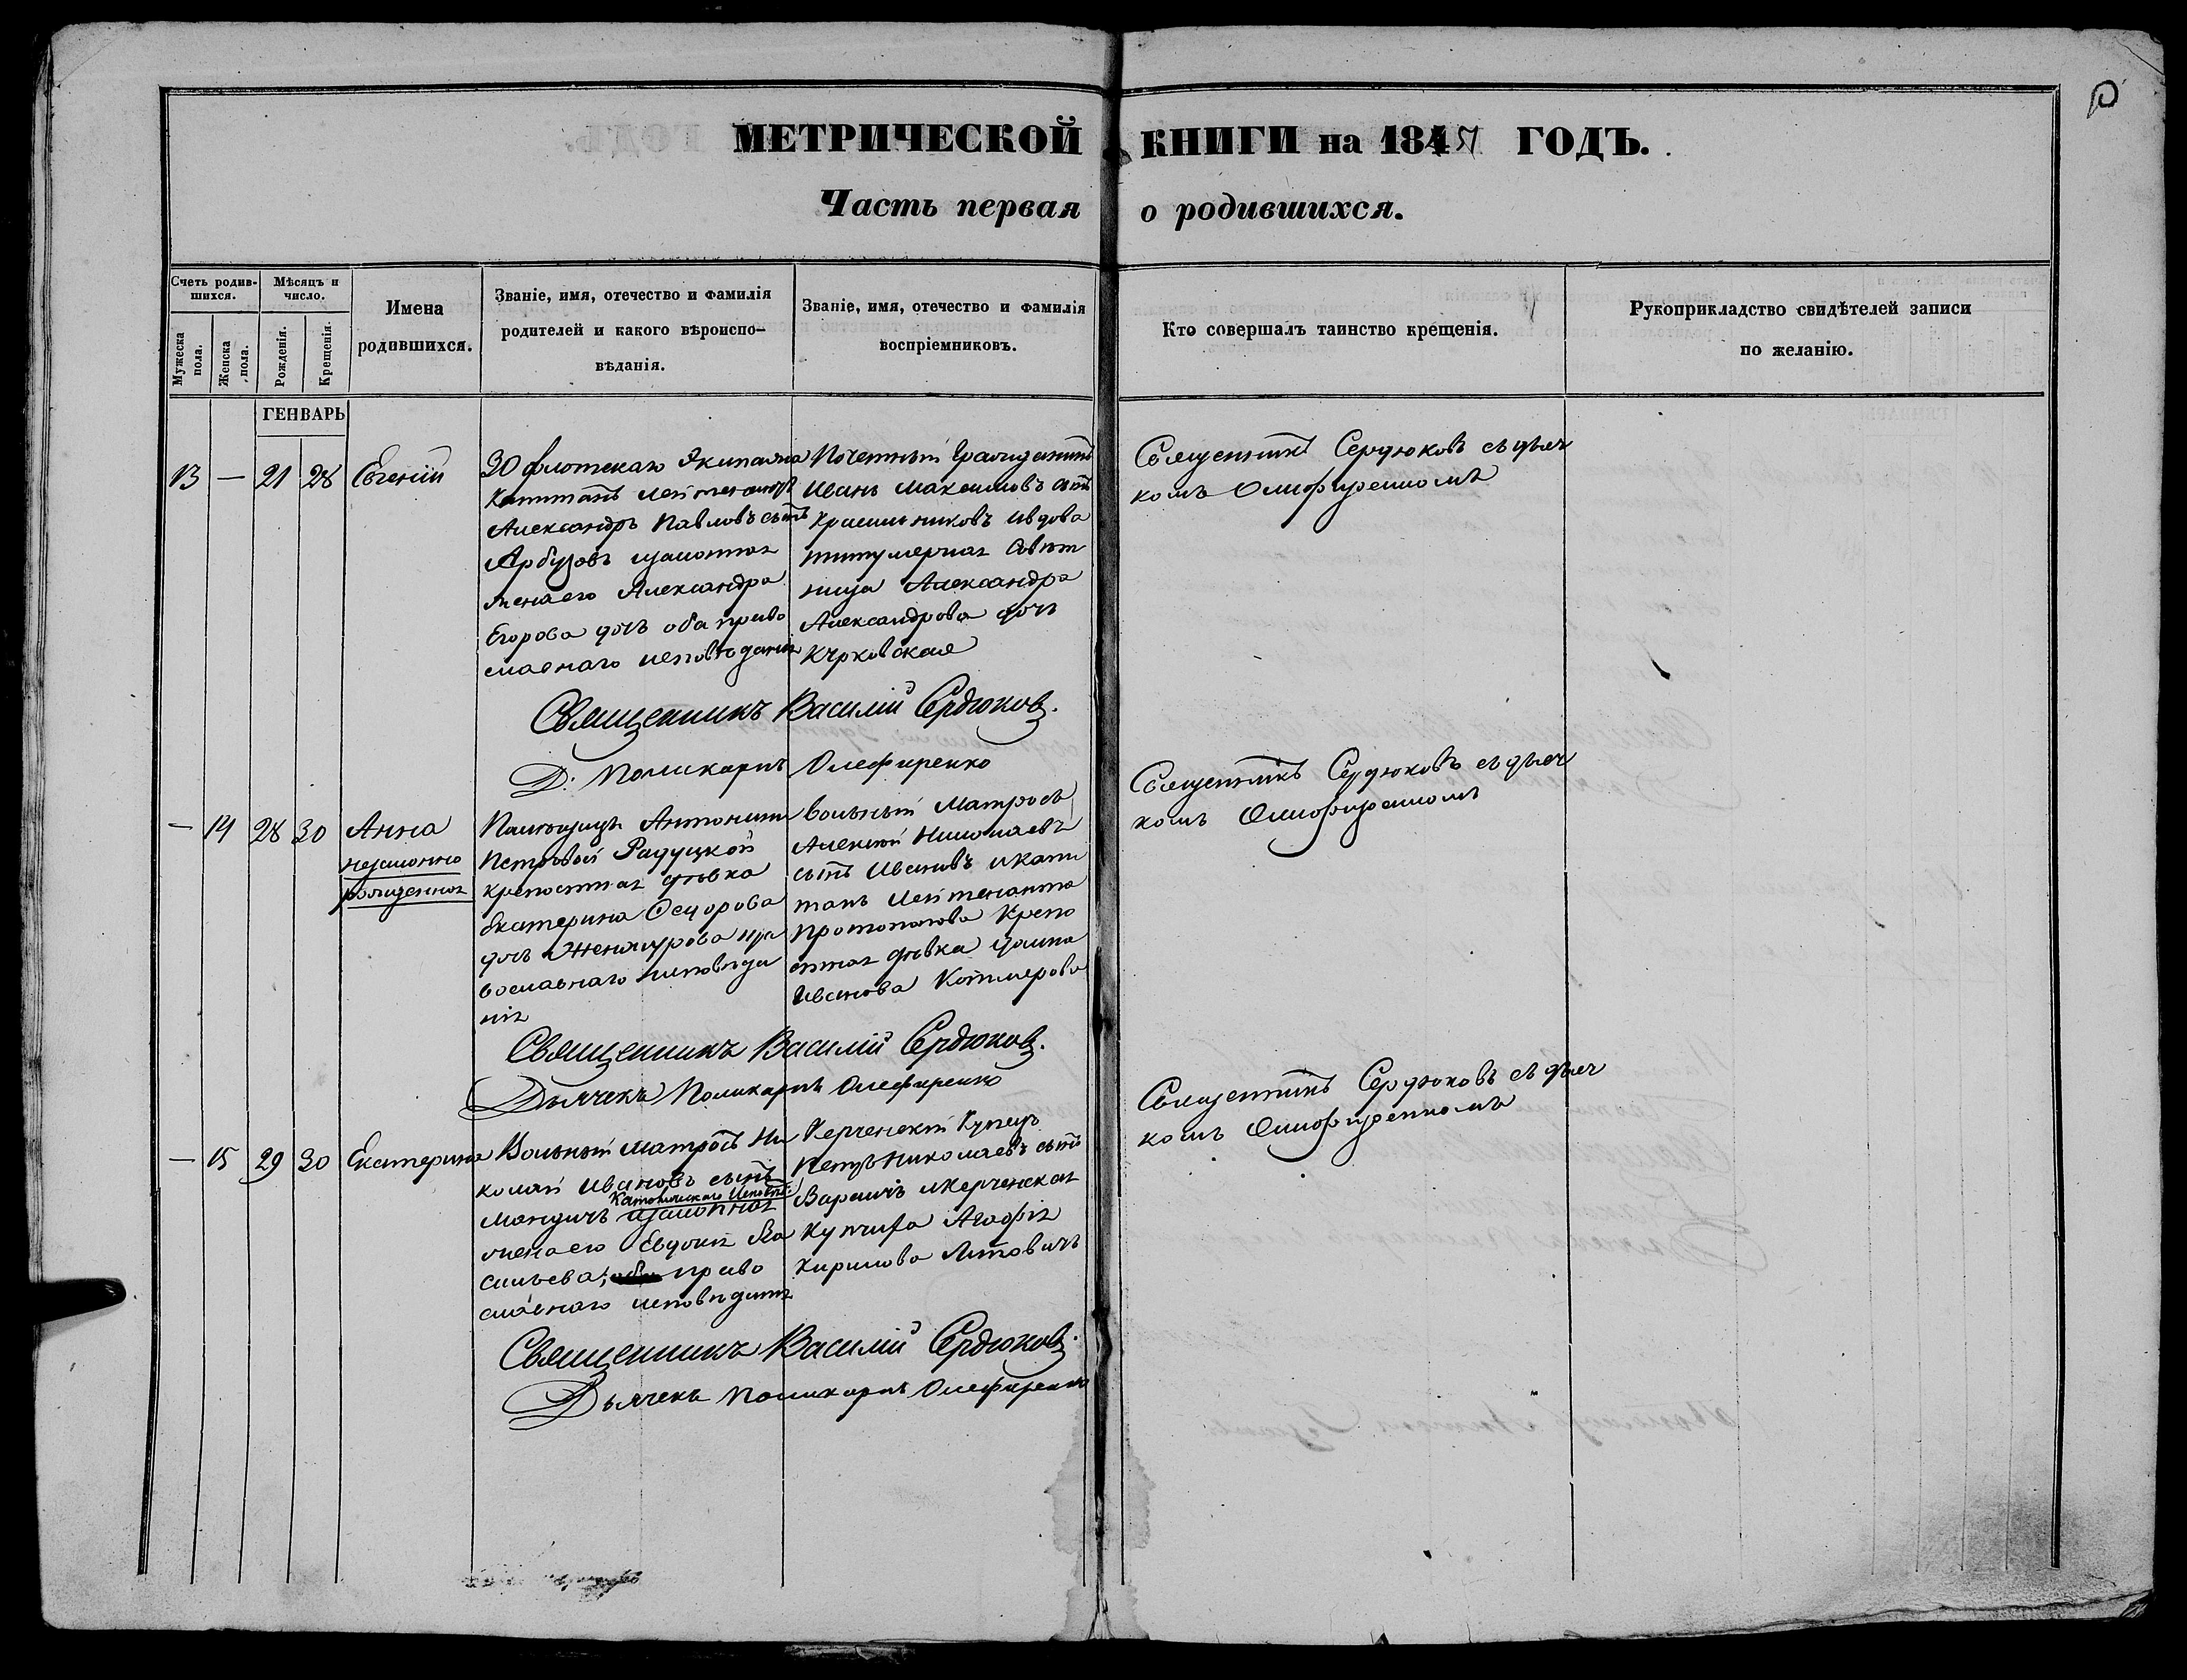 МЕТРИЧЕСКОЙ КНИГИ на 1845 ГОДЪ.
Часть первая о родившихся.
Счетъ родив-
шихся.
Мужеска
пола.
Женска
пола.
Мѣсяцъ и
число.
Рожденія.
Крещенія.
Имена
родившихся.
Званіе, имя, отечество и фамилія
родителей и какого вѣроиспо-
вѣданія.
Званіе, имя, отечество и фамилія
воспріемниковъ.
Кто совершалъ таинство крещенія.
Рукоприкладство свидѣтелей записи
по желанію.
ГЕНВАРЬ
13 — 21 28 Евгеній
30 флотскаго Экипажа
Капитанъ Лейтенантъ
Александръ Павловъ сынъ
Арбузовъ изаконная
жена его Александра
Егорова дочь оба право
славнаго исповѣданія
Почетный Гражданинъ
Иванъ Максимовъ сынъ
Красильниковъ ивдова
титулярная Совѣт
ница Александра
Александрова дочь
Священникъ Сердюковъ съ дьяч
комъ Олифиренкомъ
Священникъ Василій Сердюковъ.
Д: Поликарпъ Олефиренко
— 14 28 30 Анна
незаконно
рожденная
Помѣщицы Антонины
Петровой Радуцкой
крепостная дѣвка
Екатерина Федорова
дочь пра
вославнаго исповѣда
нія
Вольный Матросъ
Алексей Николаевъ
сынъ Ивановъ икапи
танъ Лейтенанта
Протопопова Крепо
стная дѣвка
Иванова
Священникъ Сердюковъ съ дьяч
комъ Олифиренкомъ
Священникъ Василій Сердюковъ.
Дьячекъ Поликарпъ Олефиренко
— 15 29 30 Екатерина
Вольный матросъ Ни
колай Ивановъ сынъ
Католическаго Исповѣд:
Мандичъ изаконная
жена его Евдокія Ва
сильева; право
славнаго исповѣданія
Керченскій Купецъ
Петръ Николаевъ сынъ
икерченская
Купчиха Агафія
Кирилова
Священникъ Сердюковъ съ дьяч
комъ Олифиренкомъ
Священникъ Василій Сердюковъ.
Дьячекъ Поликарпъ Олефиренко